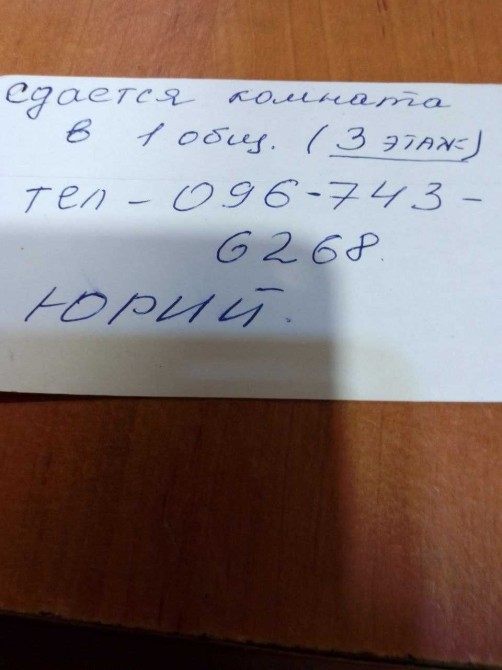 сдается комната
в 1 общ. (3 этаж)
тел - 096-743-
6268.
ЮРИЙ.